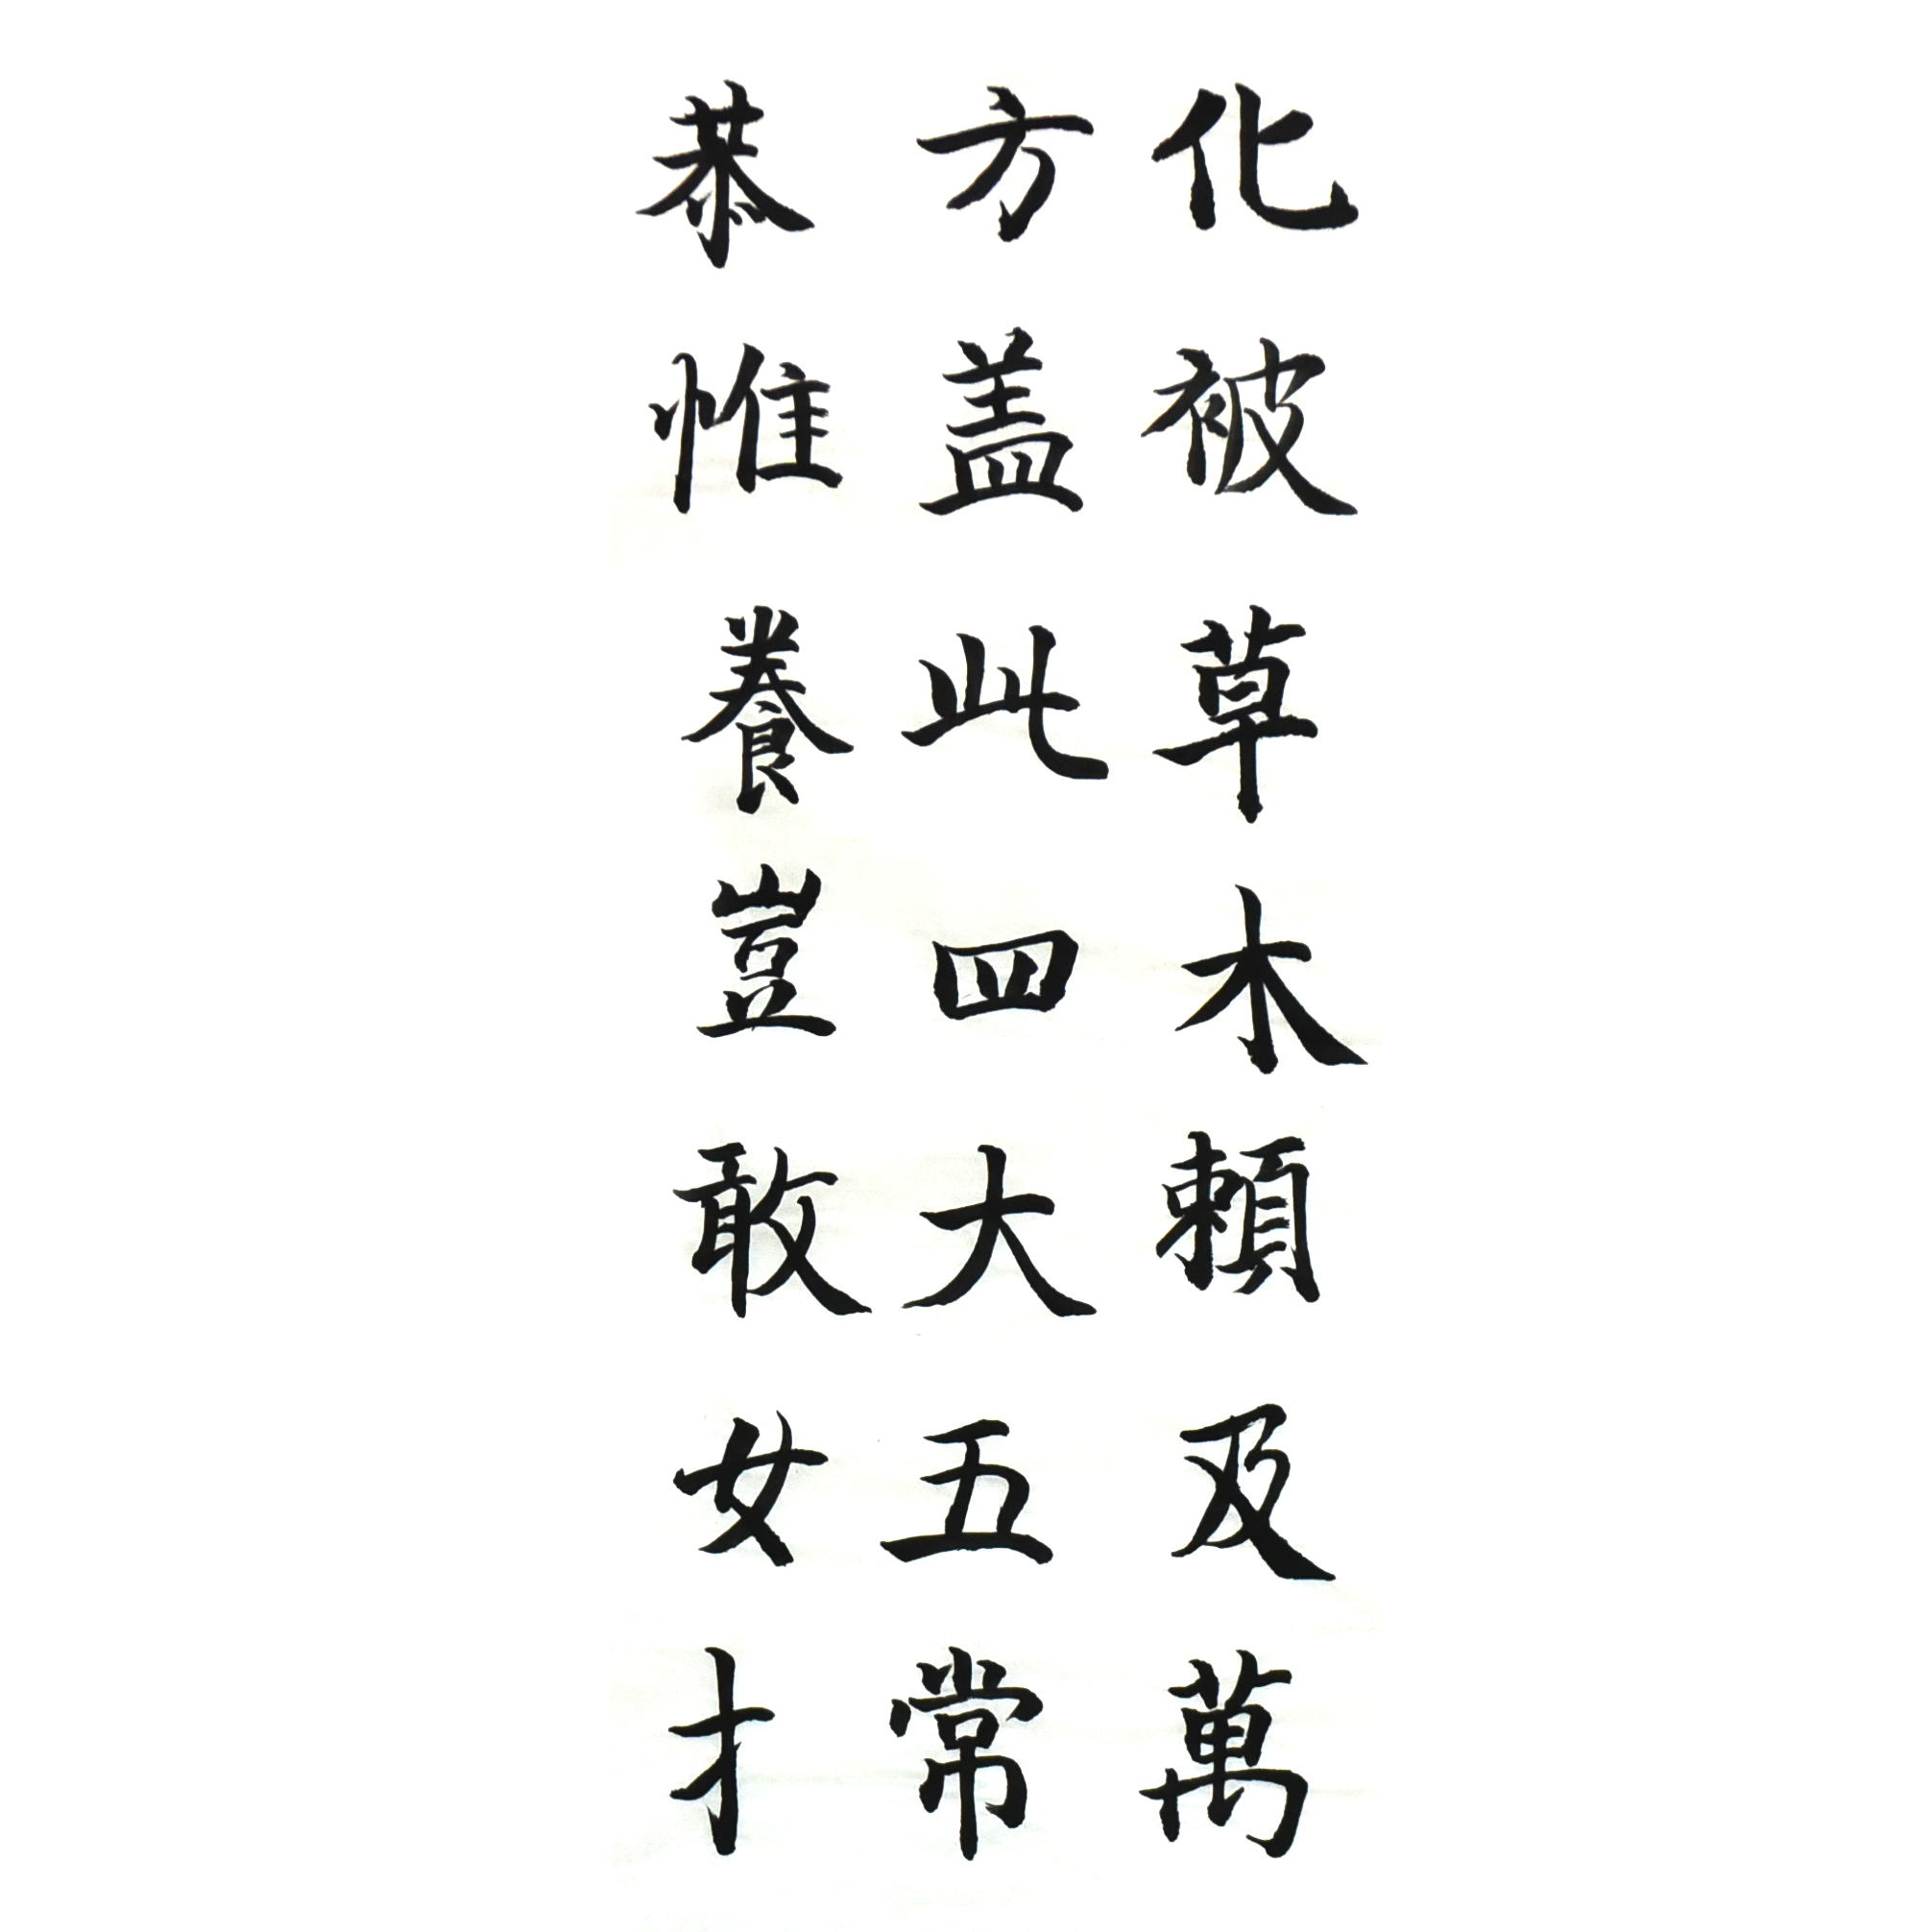 化被草木賴及萬
方盖此四大五常
恭惟養豈敢女才